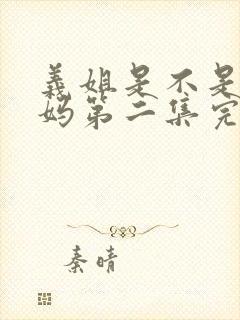 義姐是不是
妈第二集完
秦晴